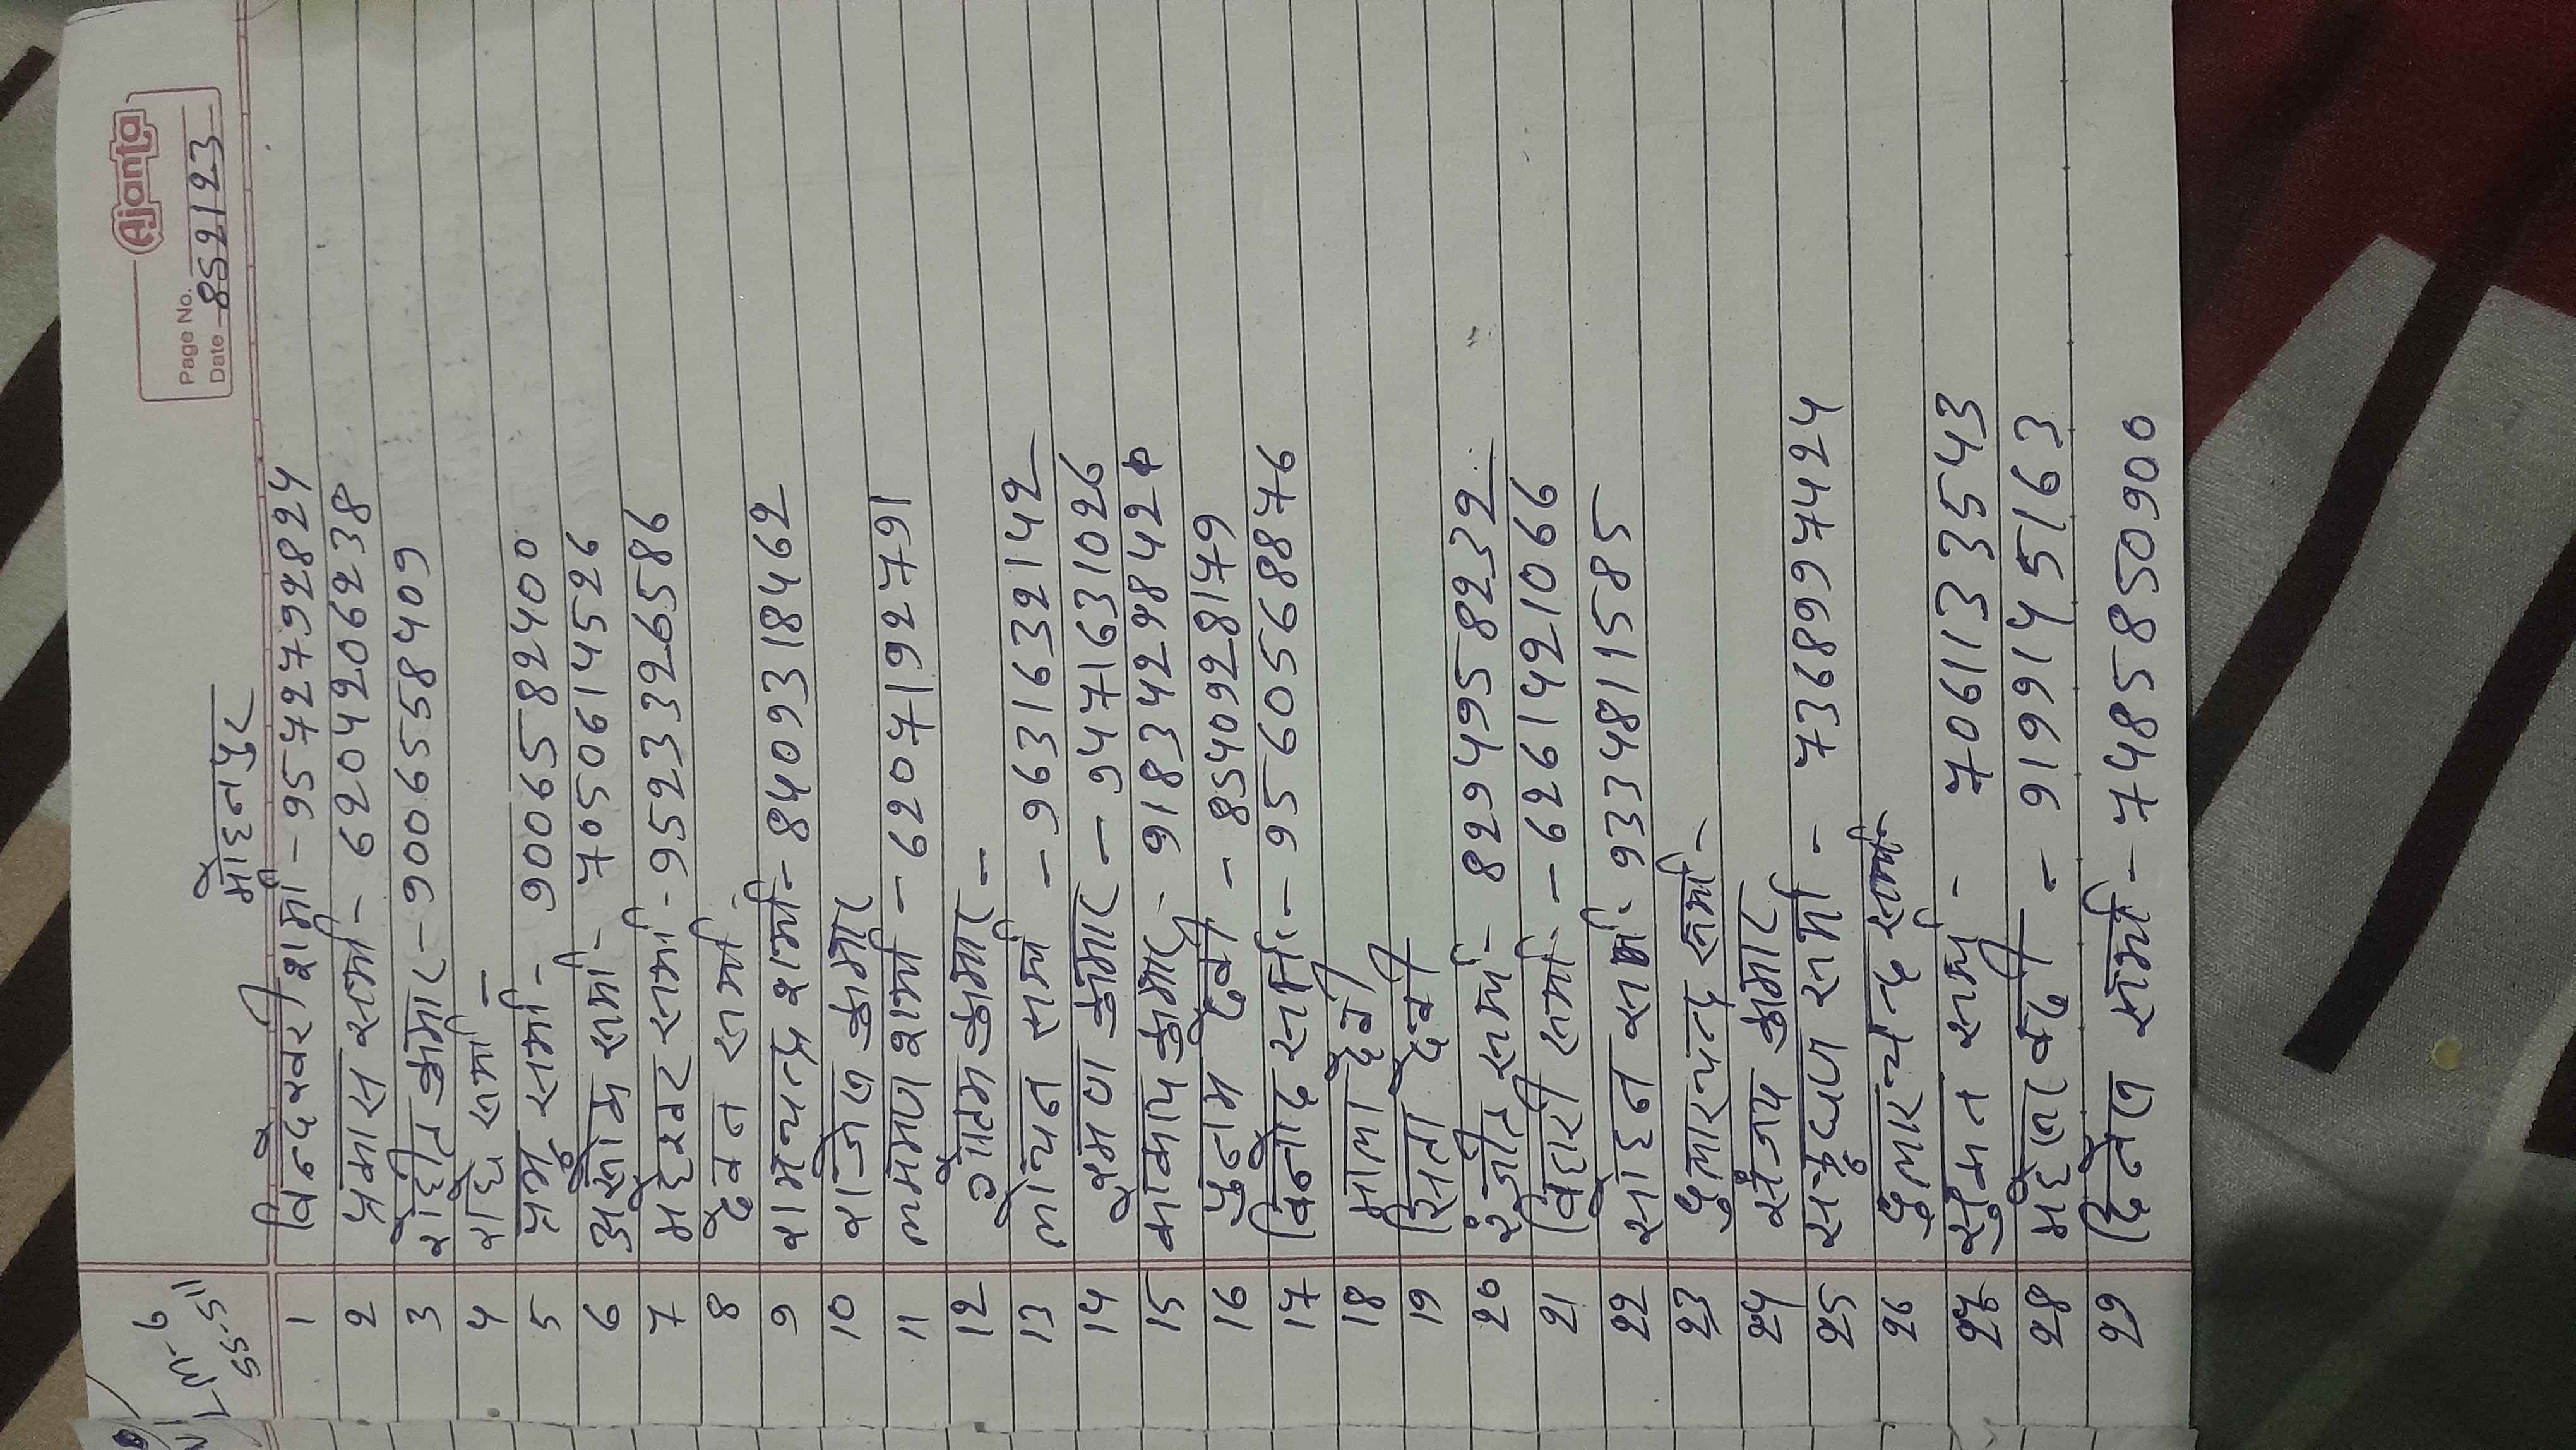 Ajanta
Page No.
Date 8521 23
LM-6
SS-511
मोहनपुर
1 विन्देश्वरी शर्मा - 9572792824
2 प्रकास सर्मा - 6204206238
3 रोहीत कुमार - 9006558409
4 राधे सर्मा -
5 प्रभु सर्मा - 9006582400
6 असोक सर्मा - 7050614526
7 महेश्वर सर्मा - 9523326586
8 देवन सर्मा
9 रामचन्द्र शर्मा - 8409318462
10 राजेश कुमार
11 लक्ष्मण शर्मा - 6207192791
12 गौतम कुमार -
13 लोचन सर्मा - 9631632142
14 कुमार - 9471631026
15 कुमार - 9183429842
16 पुनम देवी - 8540928179
17 विनोद सर्मा - 9560568876
18 माला देवी
19 सिता देवी
20 रंजीत सर्मा - 8294958232
21 बिहारी सर्मा - 6261421066
22 सोहन सर्मा - 9334811585
23 फुलारचन्द्र सर्मा -
24 संजय कुमार
25 सर्मा - 7368997424
26 फुलारचन्द्र सर्मा -
27 सुमन सर्मा - 7061133543
28 - 9199145163
29 दिनेश सर्मा - 7485850900